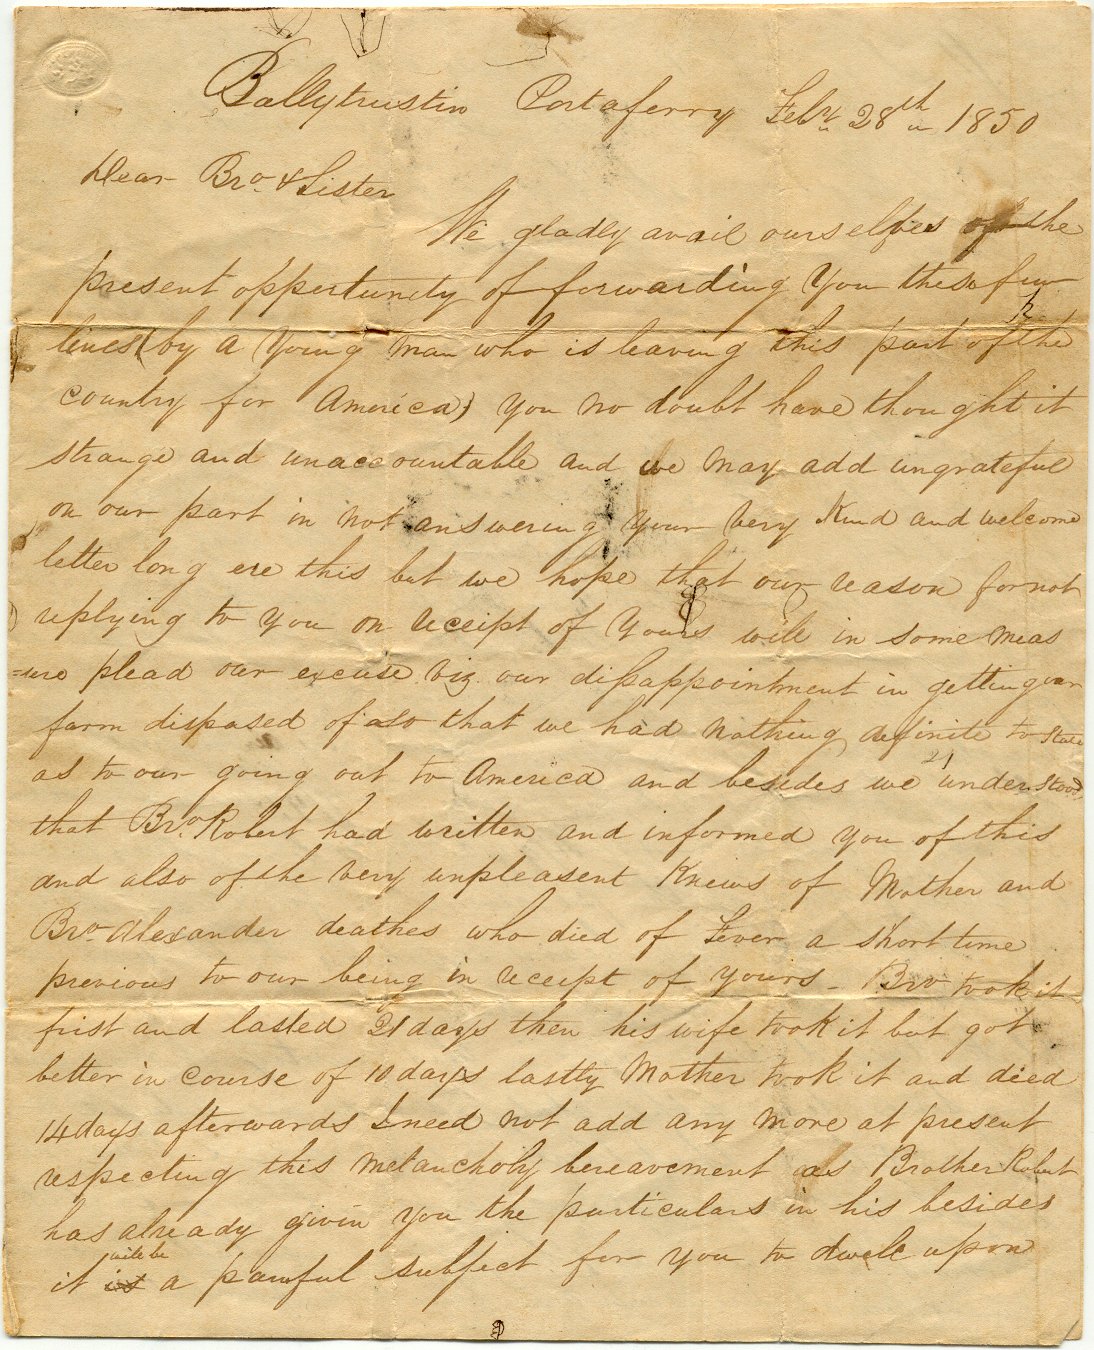 Ballytrustin Portaferry Feby 28th 1850
Dear Bro & Sister
We gladly avail ourselves of the
present oppertunity of forwarding You these few
lines (by a Young man who is leaving this part of the
country for America) you no doubt have thought it
strange and unaccountable and we may add ungrateful
on our part in not answering your very Kind and welcome
letter long ere this but we hope that our reason for not
replying to You on receipt of Yours will in some meas
=ure plead our excuse viz. our disappointment in getting our
farm disposed of also that we had nothing definite to State
as to our going out to America and besides we understood
that Bro. Robert had written and informed you of this
and also of the very unpleasent Knews of Mother and
Bro. Alexander deathes who died of Fever a short time
previous to our being in receipt of yours - Bro took it
frist and lasted 21 days then his wife took it but got
better in course of 10 days lastly Mother took it and died
14 days afterwards I need not add any more at present
respecting this melancholy bereavement as Brother Robert
has already givin you the particulars in his besides
will be
it is a painful subject for you to dwell upon